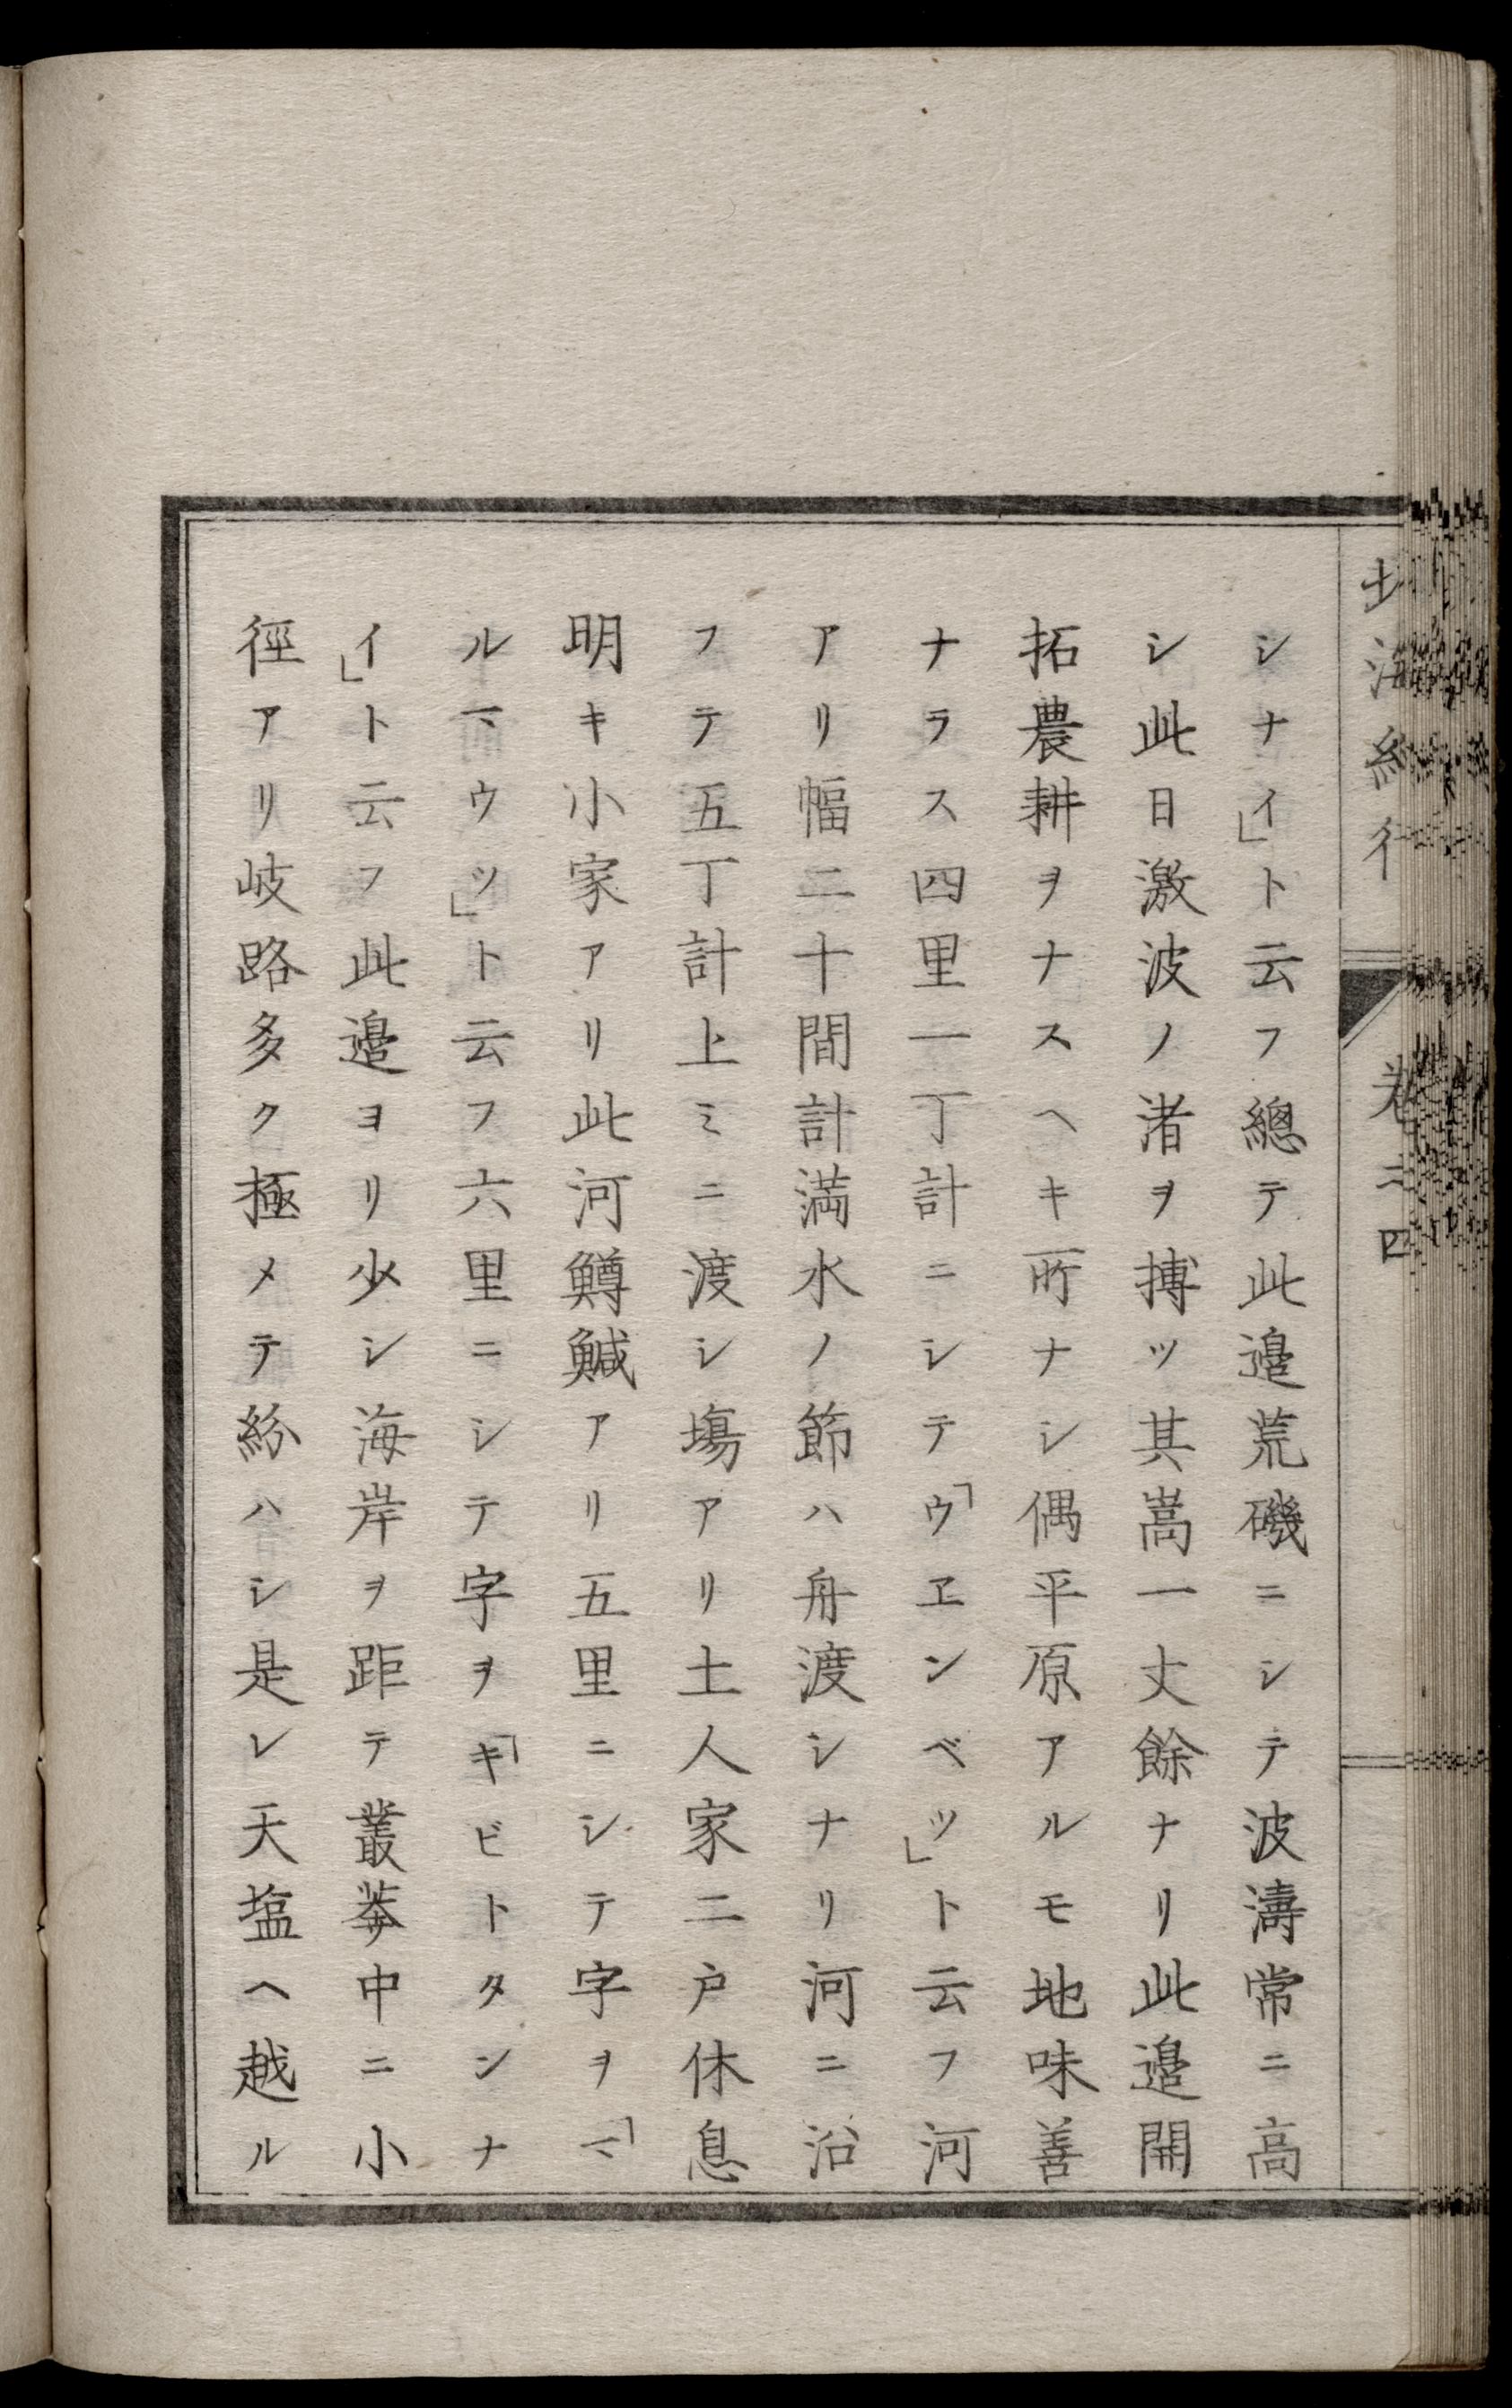 北海紀行 巻二 四
シナイ」ト云フ總テ此邉荒磯ニシテ波濤常ニ高
シ此日激波ノ渚ヲ搏ツ其嵩一丈餘ナリ此邉開
拓農耕ヲナスヘキ所ナシ偶平原アルモ地味善
ナラス四里一丁計ニシテ「ウヱンベツ」ト云フ河
アリ幅二十間計満水ノ節ハ舟渡シナリ河ニ沿
フテ五丁計上ミニ渡シ塲アリ土人家二戸休息
明キ小家アリ此河鱒鰔アリ五里ニシテ字ヲ「マ
ルマウツ」ト云フ六里ニシテ字ヲ「キビトタンナ
イ」ト云フ此邉ヨリ少シ海岸ヲ距テ叢莽中ニ小
徑アリ岐路多ク極メテ紛ハシ是レ天塩ヘ越ル